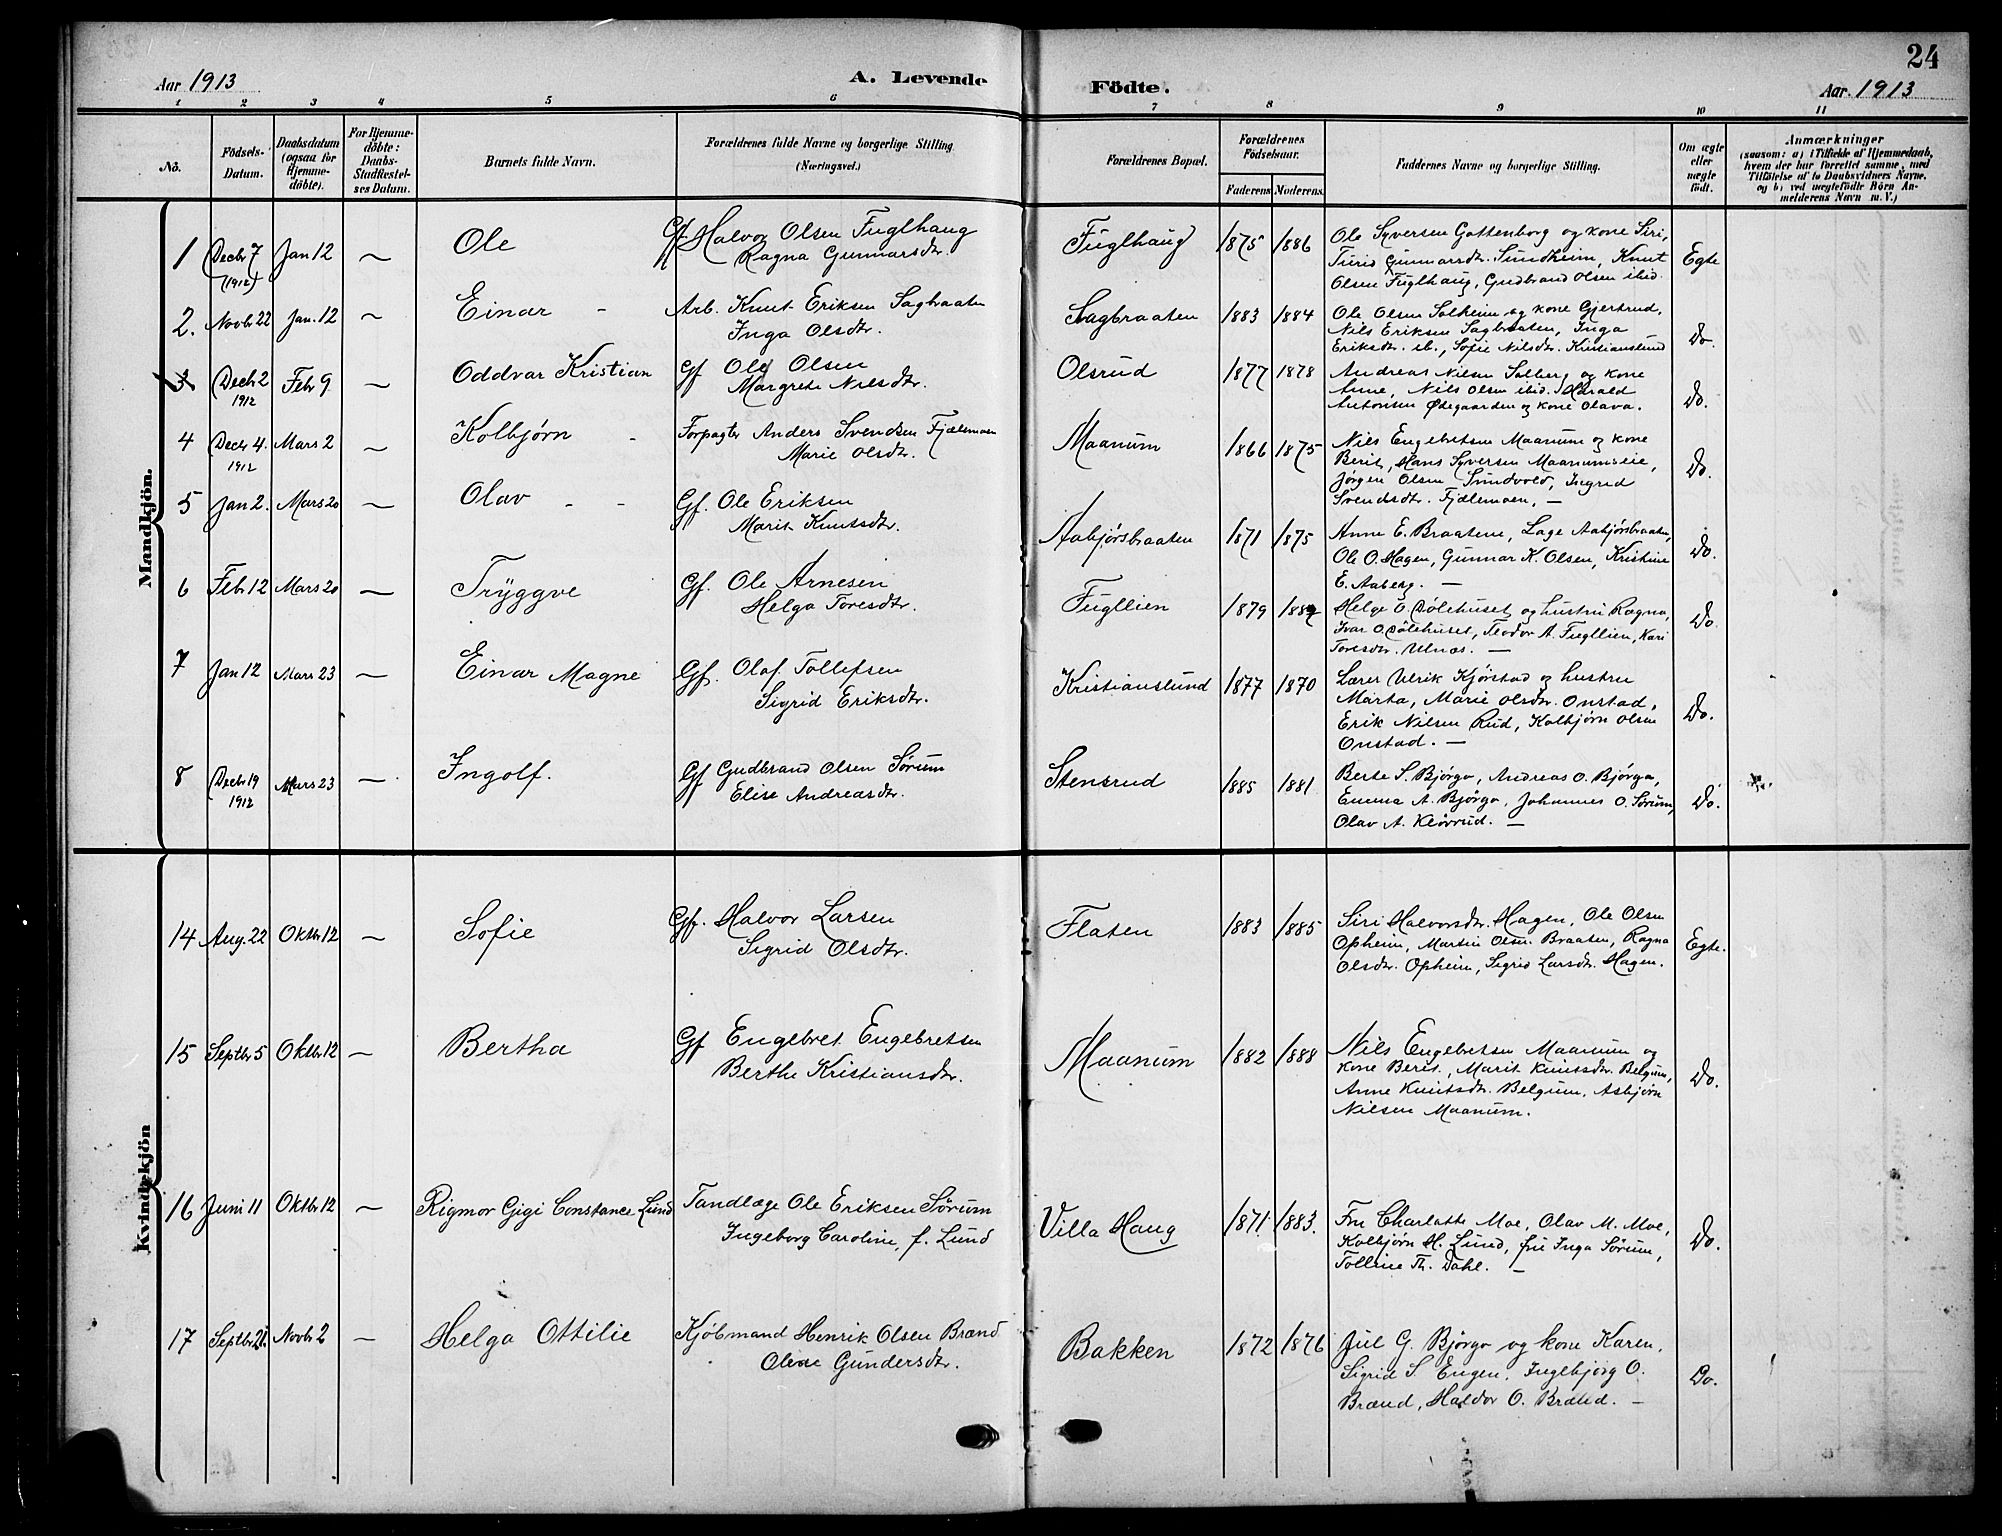 24
Aar 1913
A. Levende
Födte.
Aar. 1913
1 2 3 4 5 6 7 8 9 10 11
No.
Födsels-Datum.
Daabsdatum (ogsaa for Hjemme-döbte).
For Hjemme-döbte: Daabs-Stadfæstel-ses Datum.
Barnets fulde Navn.
Forældrenes fulde Navne og borgerlige Stilling (Næringsvei.)
Forældrenes Bopæl.
Forældrenes Födselsaar.
Faderens
Moderens.
Faddernes Navne og borgerlige Stilling.
Om ægte eller uægte födt.
Anmærkninger
(saasom: a) i Tilfælde af Hjemmedaab,
hvem der har forrettet samme, med
Tilföielse af to Daabsvidners Navne,
og b) ved uægtefödte Börn An-
melderens Navn m. V.)
Mandkjön.
1 Decbr 7 (1912) Jan 12 — Ole Gf Halvor Olsen Fuglhaug
Ragna Gunnarsdtr.
Fuglhaug 1875 1886 Ole Syversen Gottenborg og kone Siri,
Turid Gunnarsdtr. Sundheim, Knut
Olsen Fuglhaug, Gudbrand Olsen ibid.
Egte
2. Novbr 22 Jan. 12 — Einar - Arb. Knut Eriksen Sagbraaten
Inga Olsdtr.
Sagbraaten 1883 1884 Ole Olsen Solheim og kone Gjertrud,
Nils Eriksen Sagbraaten, Inga
Eriksdtr. ib., Sofie Nilsdtr. Kristianslund
Do.
3 Decbr 2 1912 Febr 9 — Oddvar Kristian Gf Ole Olsen
Margrete Nilsdtr.
Olsrud 1877 1878 Andreas Nilsen Solberg og kone
Anne, Nils Olsen ibid. Harald
Antonsen Ødegaarden og kone Olava.
Do.
4 Decbr 4. 1912 Mars 2 — Kolbjørn - Forpagter Anders Svendsen Fjælemoen
Marie Olsdtr.
Maanum 1866 1875 Nils Engebretsen Maanum og kone
Berit, Hans Syversen Maanumseie,
Jørgen Olsen Sundvold, Ingrid
Svendsdtr. Fjælemoen, —
Do.
5 Jan 2. Mars 20 — Olav - - Gf. Ole Eriksen
Marit Knutsdtr.
Aabjørsbraaten 1871 1875 Anne E. Braatene, Lage Aabjørsbraaten,
Ole O. Hagen, Gunnar K. Olsen, Kristine
E. Aaberg. —
Do.
6 Febr 12 Mars 20 — Trÿggve Gf. Ole Arnesen
Helga Toresdtr.
Fugllien 1879 Helge O. Dölehuset og hustru Ragna,
Ivar O. Dölehuset, Teodor A. Fugllien, Kari
Toresdtr. Ulnæs. —
Do.
7 Jan 12 Mars 23 — Einar Magne Gf. Olaf Tollefsen
Sigrid Eriksdtr.
Kristianslund 1877 1870 Lærer Ulrik Kjørstad og hustru
Marta, Marie Olsdtr. Onstad,
Erik Nilsen Rud, Kolbjørn Olsen
Onstad. —
Do.
8 Decbr 19 1912 Mars 23 — Ingolf. Gf Gudbrand Olsen Sørum
Elise Andreasdtr.
Stensrud 1885 1881 Berte S. Bjørgo, Andreas O. Bjørgo,
Emma A. Bjørgo, Johannes O. Sørum,
Olav A. Kløvrud. —
Do.
Kvindekjön
14 Aug. 22 Oktbr 12 — Sofie Gf. Halvor Larsen
Sigrid Olsdtr.
Flaten 1883 1885 Siri Halvorsdtr. Hagen, Ole Olsen
Opheim, Martin Olsen Braaten, Ragna
Olsdtr. Opheim, Sigrid Larsdtr. Hagen.
Egte.
15 Septbr 5 Oktbr 12 — Bertha Gf Engebret Engebretsen
Berthe Kristiansdtr.
Maanum 1882 1888 Nils Engebretsen Maanum og
kone Berit, Marit Knutsdtr. Belgum,
Anne Knutsdtr. Belgum, Asbjørn
Nielsen Maanum.
Do.
16 Juni 11 Oktbr 12 — Rigmor Gigi Constance Lund Tandlæge Ole Eriksen Sörum
Ingeborg Caroline, f. Lund
Villa Haug 1871. 1883. Fru Charlotte Moe, Olav M. Moe,
Kolbjørn H. Lund, fru Inga Sörum,
Tolline Th. Dahl. —
Do.
17 Septbr 21. Novbr 2 — Helga Ottilie Kjöbmand Henrik Olsen Brænd
Olene Gundersdtr.
Bakken 1872 1876 Juel G. Bjørgo og kone Karen,
Sigrid S. Engen, Ingebjørg O.
Brænd, Haldor O. Brænd. —
Do.